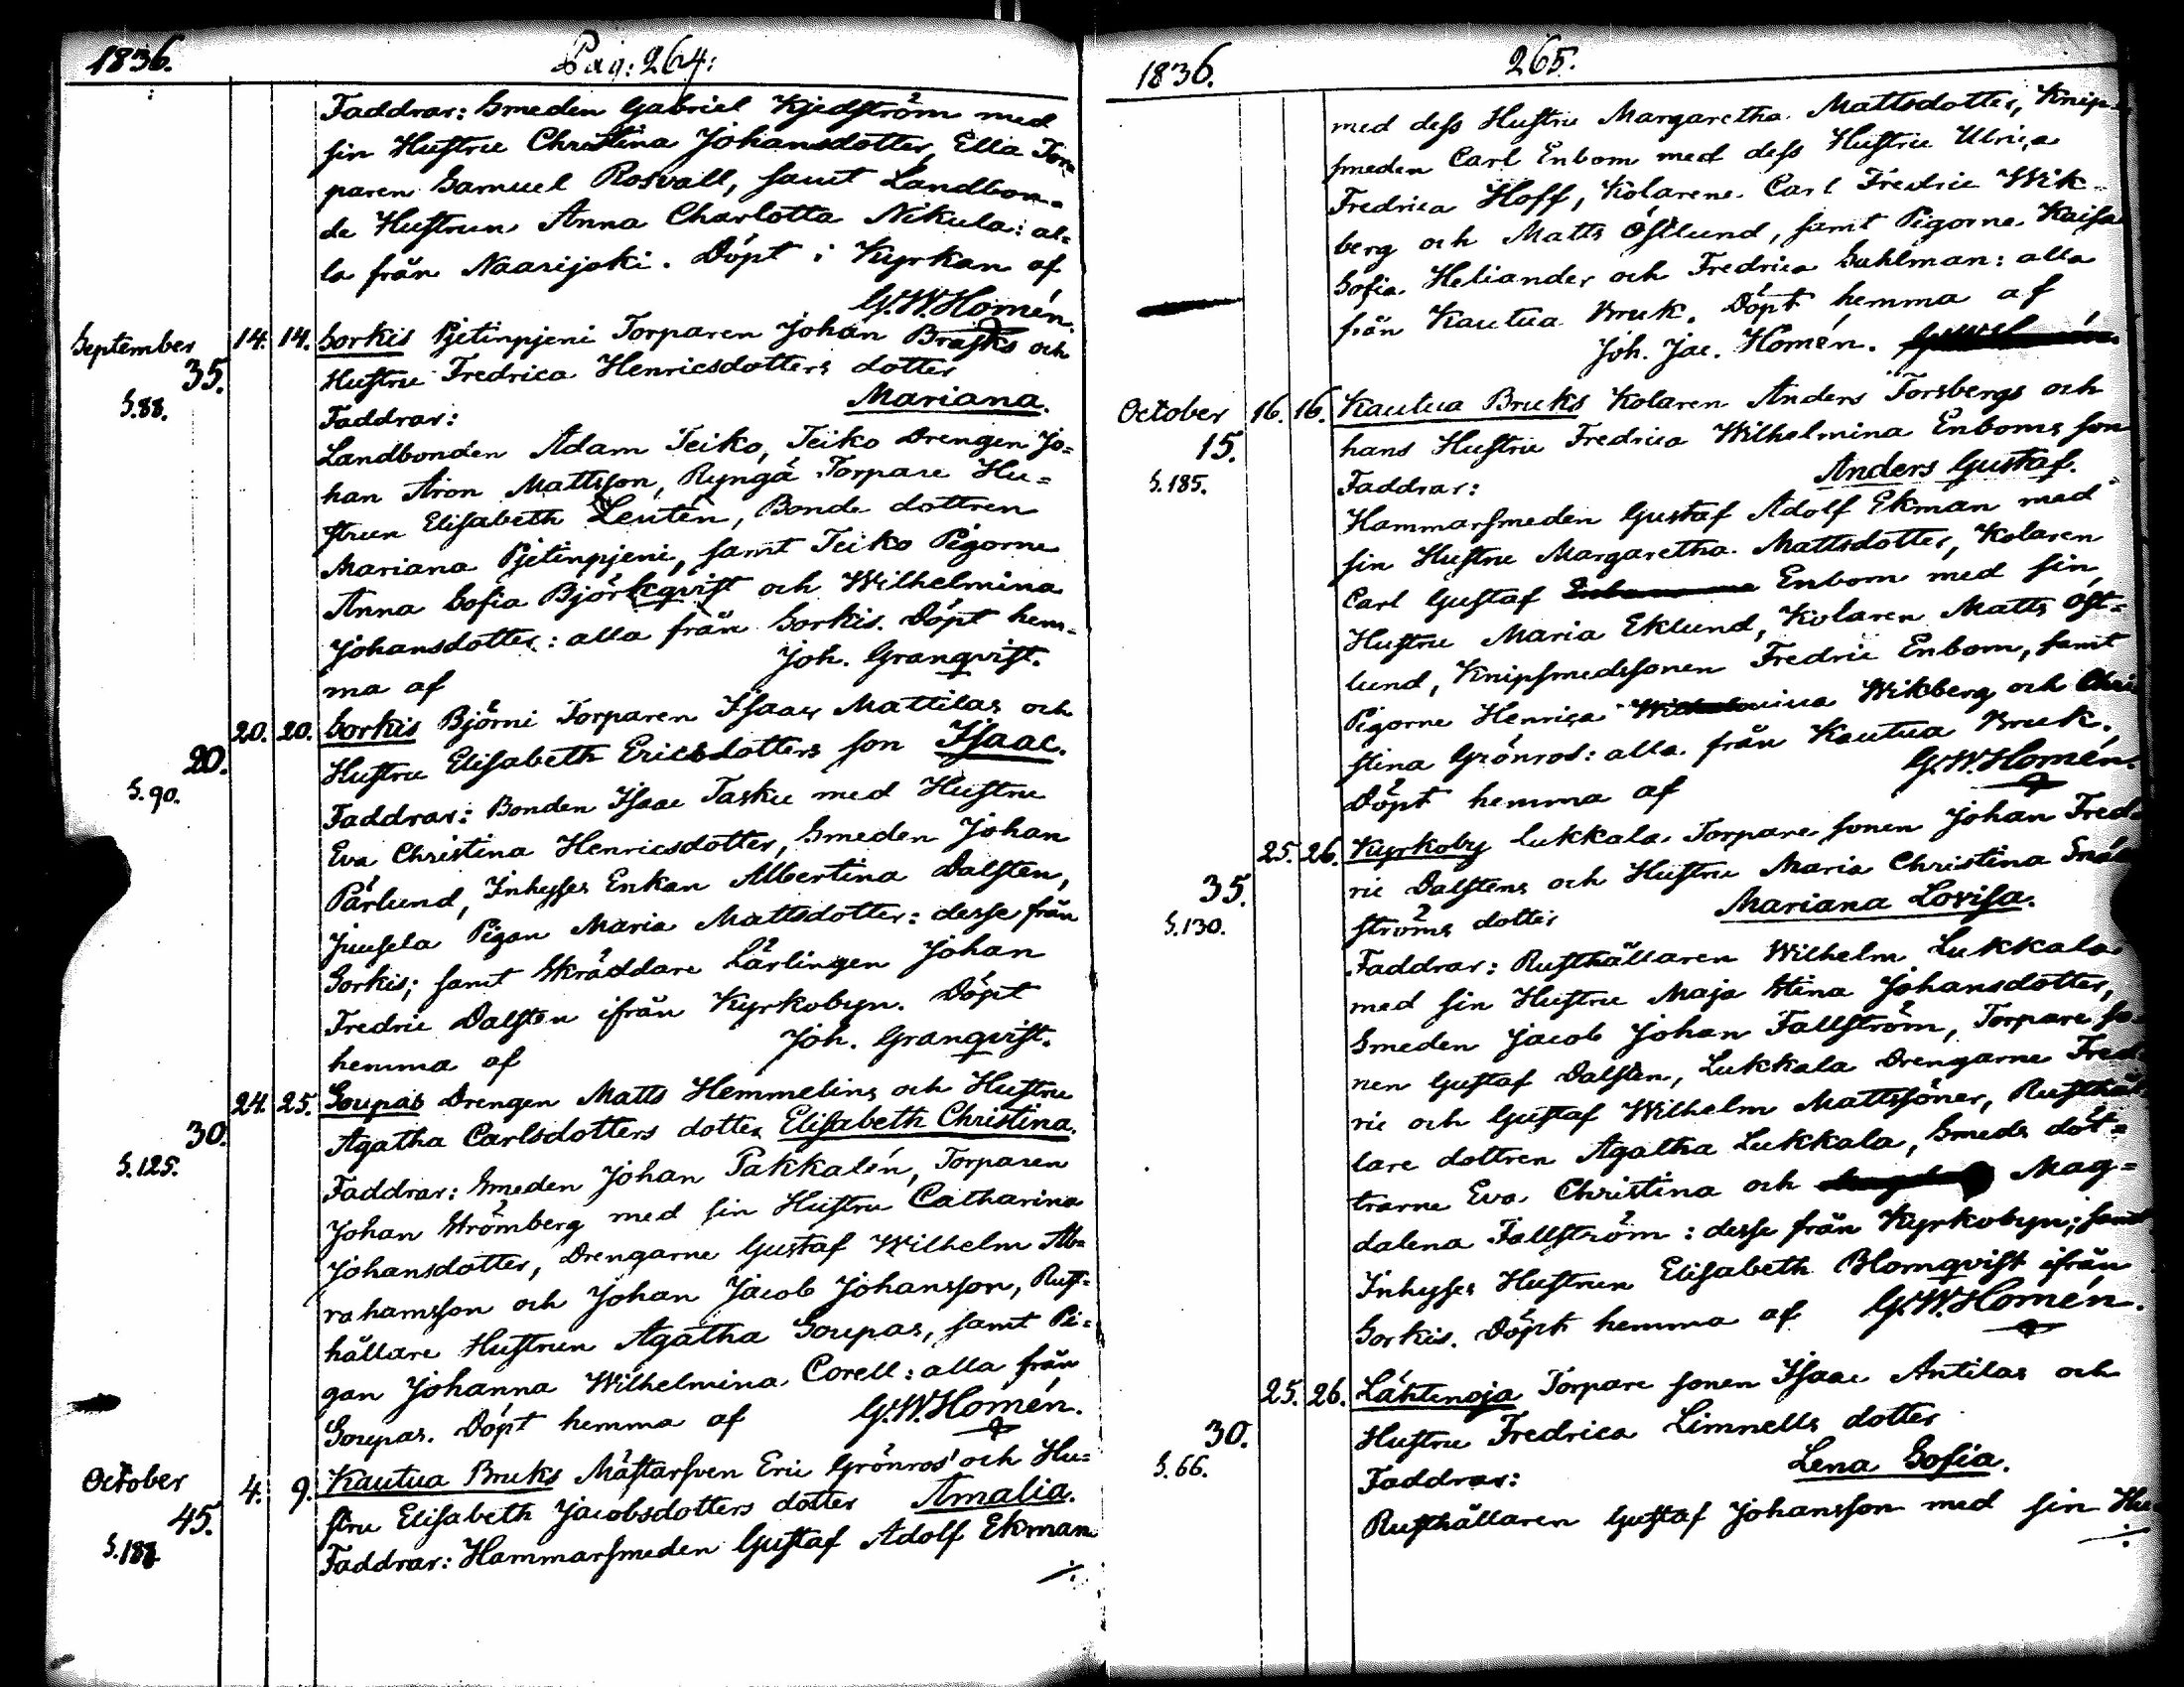 1836.
Pag: 264:
Faddrar: Smeden Gabriel Kjedström med
sin Hustru Christina Johansdotter, Ella Tor-
paren Samuel Rosvall, samt Landbon-
de Hustrun Anna Charlotta Nikula: al-
la från Naarijoki. Döpt i Kyrkan af
G.W. Homén.
September
35.
S.88.
14. 14. Sorkis Pjetinpjeni Torparen Johan Brasks och
Hustru Fredrica Henricsdotters dotter
Mariana.
Faddrar:
Landbonden Adam Teiko, Teiko Drengen Jo-
han Aron Mattsson, Ryngä Torpare Hu-
strun Elisabeth Leutén, Bonde dottren
Mariana Pjetinpjeni, samt Teiko Pigorne
Anna Sofia Björkqvist och Wilhelmina
Johansdotter: alla från Sorkis. Döpt hem-
ma af
Joh. Granqvist.
20.
S.90.
20. 20. Sorkis Björni Torparen Isaac Mattilas och
Hustru Elisabeth Ericsdotters son Isaac.
Faddrar: Bonden Isaac Tasku med Hustru
Eva Christina Henricsdotter, Smeden Johan
Pärlund, Inhyses Enkan Albertina Dalsten,
Juusela Pigan Maria Mattsdotter: desse från
Sorkis; samt Skräddare Lärlingen Johan
Fredric Dalsten ifrån Kyrkobyn. Döpt
hemma af
Joh. Granqvist.
30.
S.125.
24. 25. Soupas Drengen Matts Hemmelins och Hustru
Agatha Carlsdotters dotter Elisabeth Christina.
Faddrar: Smeden Johan Pakkalén, Torparen
Johan Strömberg med sin Hustru Catharina
Johansdotter, Drengarne Gustaf Wilhelm Ab-
rahamsson och Johan Jacob Johansson, Rust-
hållare Hustrun Agatha Soupas, samt Pi-
gan Johanna Wilhelmina Corell: alla från
Soupas. Döpt hemma af G.W. Homén.
October
45.
S.188
4. 9. Kautua Bruks Mästarsven Eric Grönros' och Hu-
stru Elisabeth Jacobsdotters dotter Amalia.
Faddrar: Hammarsmeden Gustaf Adolf Ekman
1836.
265.
med dess Hustru Margaretha Mattsdotter, Knip-
smeden Carl Enbom med dess Hustru Ulrica
Fredrica Hoff, Kolarene Carl Fredric Wik-
berg och Matts Östlund, samt Pigorne Kaisa
Sofia Heliander och Fredrica Sahlman: alla
från Kautua Bruk. Döpt hemma af
Joh. Jac. Homén.
October
15.
S.185.
16. 16. Kautua Bruks Kolaren Anders Forsbergs och
hans Hustru Fredrica Wilhelmina Enboms son
Anders Gustaf.
Faddrar:
Hammarsmeden Gustaf Adolf Ekman med
sin Hustru Margaretha Mattsdotter, Kolaren
Carl Gustaf Enbom med sin
Hustru Maria Eklund, Kolaren Matts Öst-
lund, Knipsmedssonen Fredric Enbom, samt
Pigorne Henrica Wikberg och Chri
stina Grönros: alla från Kautua Bruk.
Döpt hemma af
G.W. Homén.
35.
S.130.
25. 26. Kyrkoby Lukkala Torpare sonen Johan Fred-
ric Dalstens och Hustru Maria Christina
ströms dotter
Mariana Lovisa.
Faddrar: Rusthållaren Wilhelm Lukkala
med sin Hustru Maja Stina Johansdotter,
Smeden Jacob Johan Fallström, Torpare so-
nen Gustaf Dalsten, Lukkala Drengarne Fred-
ric och Gustaf Wilhelm Mattssöner, Rusthål-
lare dottren Agatha Lukkala, Smeds döt-
trarne Eva Christina och Mag-
dalena Fallström: desse från Kyrkobyn; samt
Inhyses Hustrun Elisabeth Blomqvist ifrån
Sorkis. Döpt hemma af G.W. Homén.
30.
S.66.
25. 26. Lähtenoja Torpare sonen Isaac Antilas och
Hustru Fredrica Limnells dotter
Lena Sofia.
Faddrar:
Rusthållaren Gustaf Johansson med sin Hu-